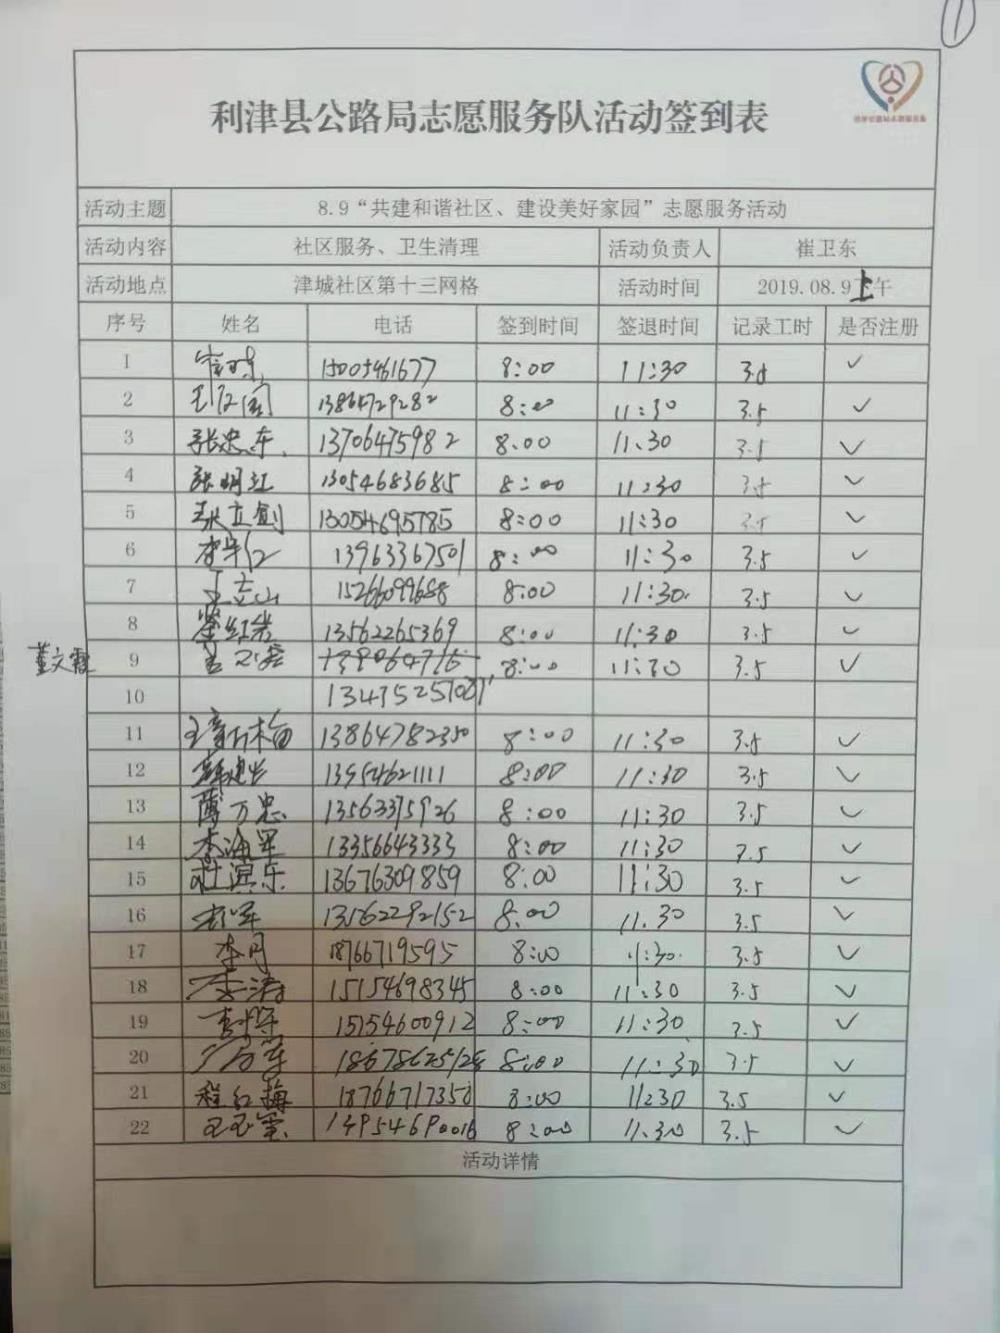 1
利津县公路局志愿服务队活动签到表
活动主题 8.9“共建和谐社区、建设美好家园”志愿服务活动
活动内容 社区服务、卫生清理 活动负责人 崔卫东
活动地点 津城社区第十三网格 活动时间 2019.08.9上午
序号 姓名 电话 签到时间 签退时间 记录工时 是否注册
1 15005461677 8:00 11:30 3.5 ✓
2 13864729282 8:00 11:30 3.5 ✓
3 张忠东 13706475982 8.00 11.30 3.5 ✓
4 张明江 13054683685 8:00 11:30 3.5 ✓
5 张立剑 13054695785 8:00 11:30 3.5 ✓
6 13963367501 8:00 11:30 3.5 ✓
7 丁立山 15266099688 8:00 11:30. 3.5 ✓
8 13562265369 8:00 11:30 3.5 ✓
董文霞 9 8:00 11:30 3.5 ✓
10 13475257081
11 13864782350 8:00 11:30 3.5 ✓
12 薛建光 13954621111 8:00 11:30 3.5 ✓
13 薄万忠 13563375926 8:00 11:30 3.5 ✓
14 李海军 13356643333 8:00 11:30 3.5 ✓
15 杜滨乐 13676309859 8:00 11:30 3.5 ✓
16 13562292152 8.00 11.30 3.5 ✓
17 李月 18766719595 8:00 11:30. 3.5 ✓
18 李涛 15154698345 8:00 11:30 3.5 ✓
19 15154600912 8:00 11:30 3.5 ✓
20 8:00 11:30 3.5 ✓
21 程红梅 18766717350 8:00 11:30 3.5 ✓
22 8:00 11.30 3.5 ✓
活动详情